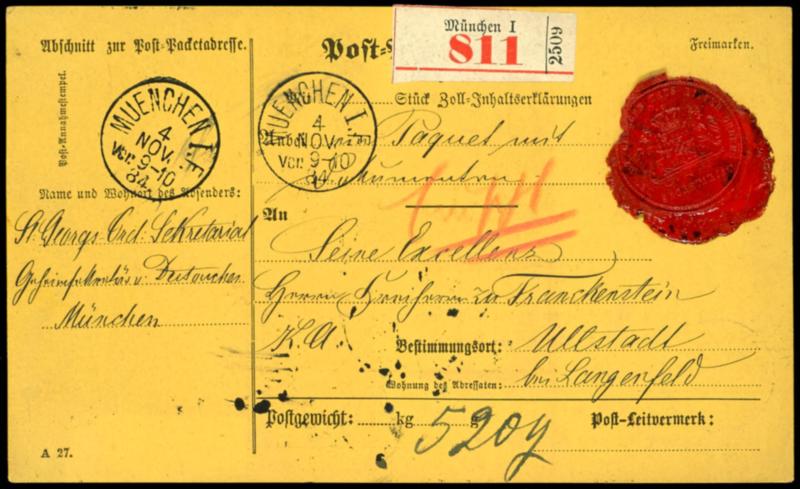 Abschnitt zur Post-Packetadresse.
Post-
München I
811
2509
Freimarken.
Post-Annahmestempel.
MUENCHEN I.F.
4
NOV.
Vor. 9-10
84
MUENCHEN I.F.
4
NOV.
Vor. 9-10
84
Stück Zoll-Inhaltserklärungen
Anbei
Paquet mit
Name und Wohnort des Absenders:
St. Georgs Ord. Sekretariat
München
An
Seine Excellenz
Herrn Freiherrn zu Franckenstein
Bestimmungsort: Ullstadt
bei Langenfeld
Wohnung des Adressaten:
Postgewicht: kg g
520 g
Post-Leitvermerk:
A 27.